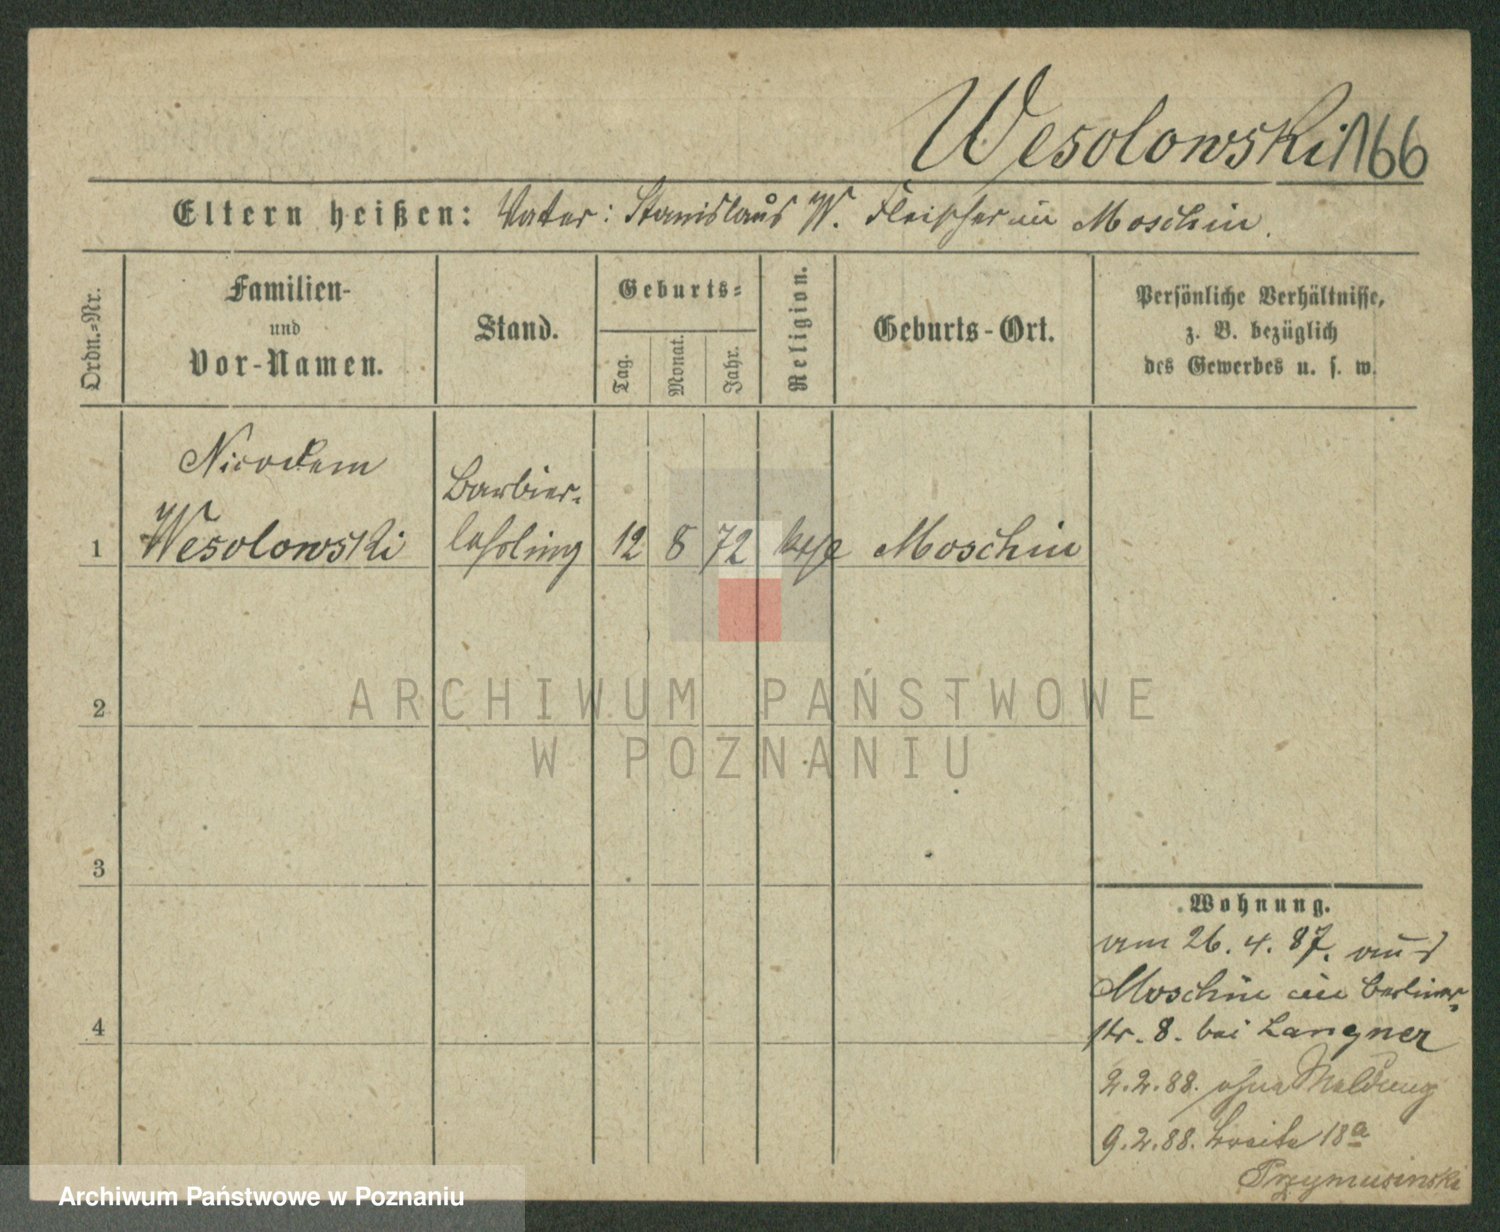 Wesolowski 166
Eltern heißen: Vater: Stanislaus W. Fleischer in Moschin.
Ordn.-Nr.
Familien-
und
Vor-Namen.
Stand.
Geburts-
Tag.
Monat.
Jahr.
Religion.
Geburts-Ort.
Persönliche Verhältnisse,
z. B. bezüglich
des Gewerbes u. s. w.
Nicodem
Barbier-
1 Wesolowski lehrling 12 8 72 Moschin
ARCHIWUM PAŃSTWOWE
2
W POZNANIU
3
Wohnung.
am 26. 4. 87. aus
Moschin in Berliner-
4
str. 8. bei Langner
2.2.88. ohne Meldung
9.2.88. Breite 18a
Przymusinski
Archiwum Państwowe w Poznaniu